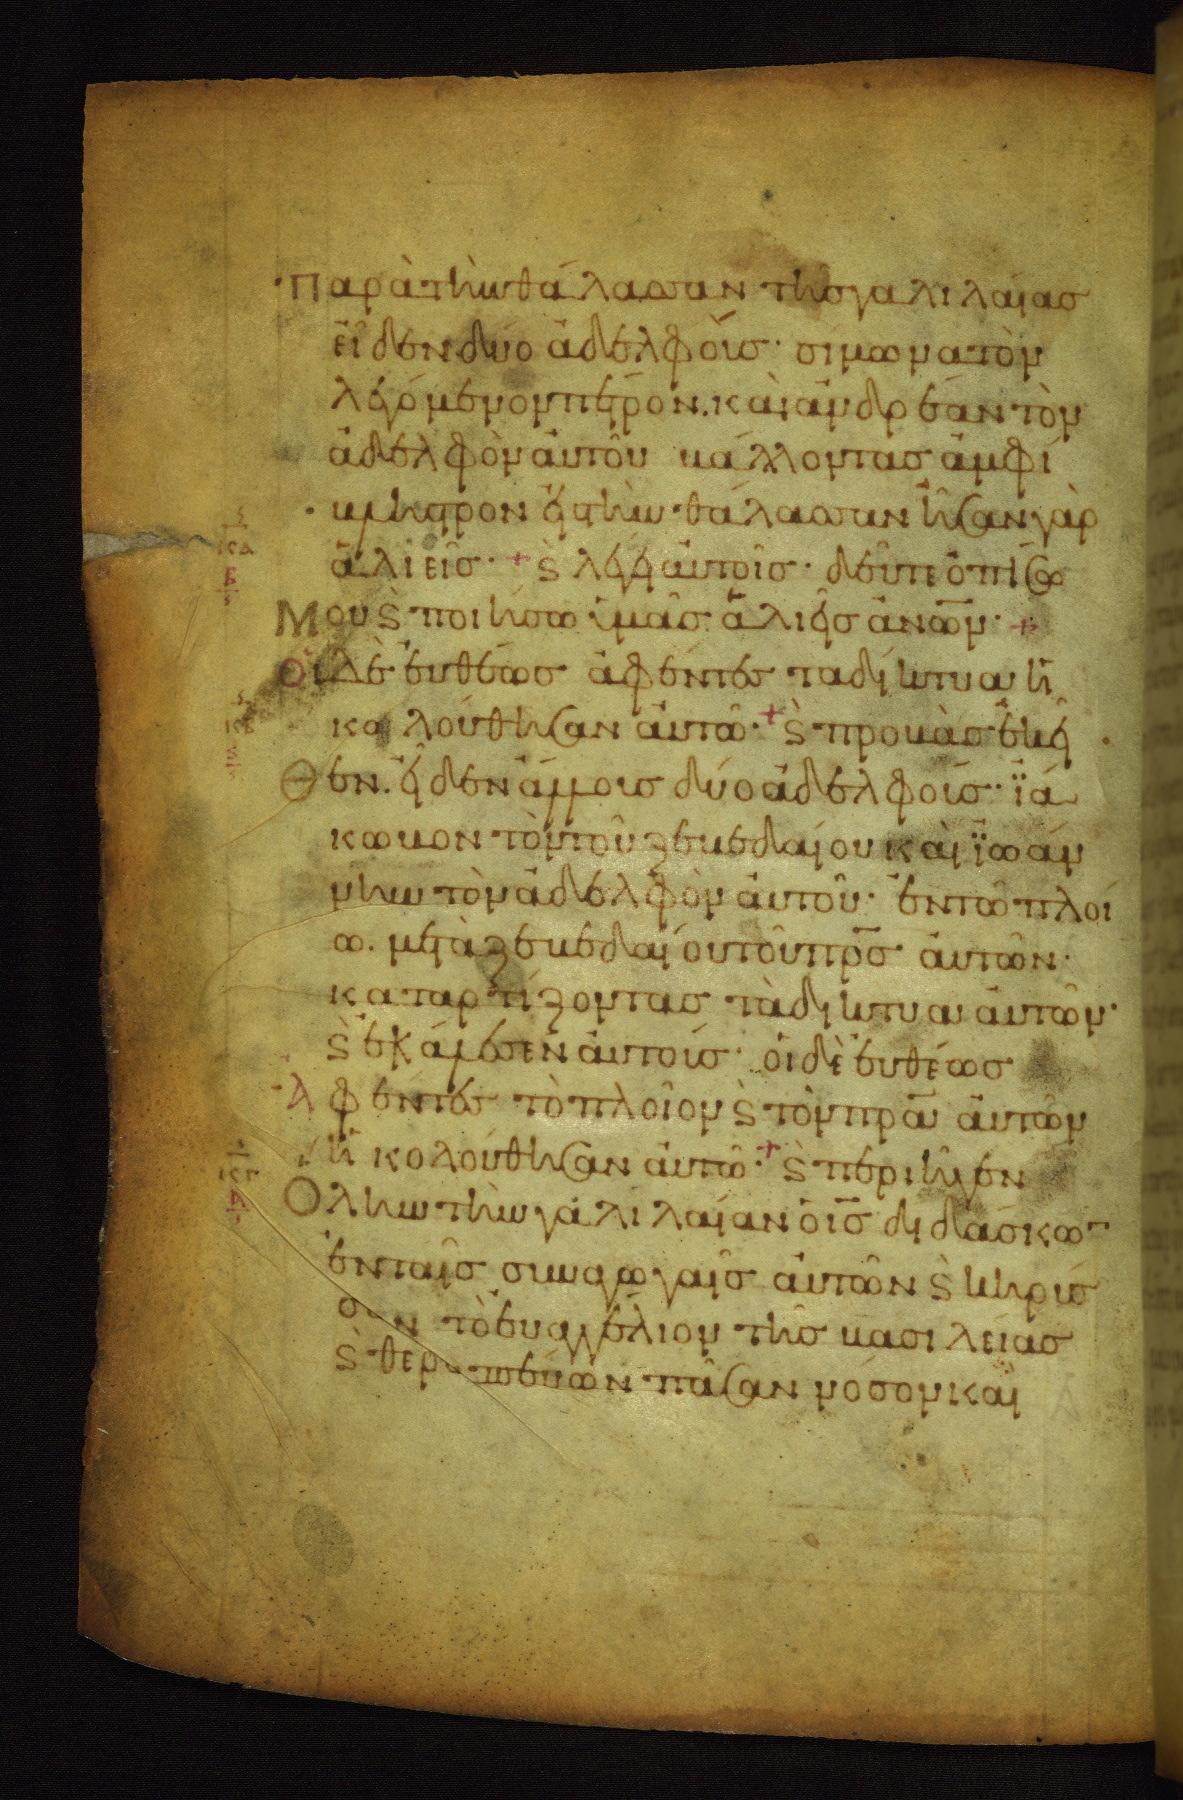 Παρὰ τὴν θάλασσαν τῆς γαλιλαίας
εἶδεν δύο ἀδελφοὺς· σίμωνα τὸν
λεγόμενον πέτρον. καὶ ἀνδρέαν τὸν
ἀδελφὸν αὐτοῦ βάλλοντας ἀμφί
βληστρον εἰς τὴν θάλασσαν ἦσαν γὰρ
ἁλιεῖς· + ϛ λέγει αὐτοῖς· δεῦτε ὀπίσω
Μου ϛ ποιήσω ὑμᾶς ἁλιεῖς ἀνω̅ν· +
Οἱ δὲ εὐθέως ἀφέντες τὰ δίκτυα ἠ
κολούθησαν αὐτῶ· + ϛ προβὰς ἐκεῖ
Θεν. εἶδεν ἄλλοις δύο ἀδελφοίς· ϊά
κωβον τὸν τοῦ ζεβεδαίου καὶ ϊωάν
νην τὸν ἀδελφὸν αὐτοῦ· ἐν τῶ πλοί
ω. μετὰ ζεβεδαίου τοῦ πρ̅ς αὐτῶν·
καταρτίζοντας τὰ δίκτυα αὐτῶν·
ϛ ἐκάλεσεν αὐτοίς· οἱ δὲ εὐθέως
Ἀφέντες τὸ πλοῖον ϛ τὸν πρ̅α αὐτῶν
ἠκολούθησαν αὐτῶ· + ϛ περιῆγεν
Ὅλην τὴν γαλιλαίαν ὁ ι̅ς διδάσκω̅
ἐν ταῖς συναγωγαῖς αὐτῶν ϛ κηρύς
σων τὸ εὐαγγέλιον τῆς βασιλείας
ϛ θεραπεύων πᾶσαν νόσον καὶ